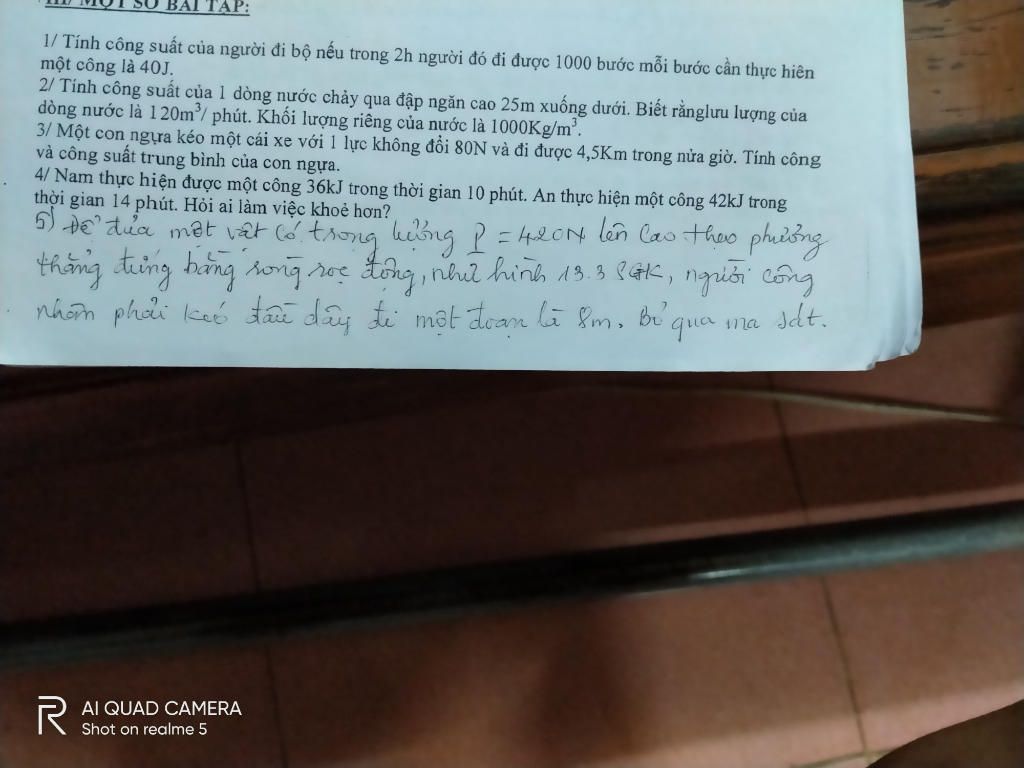 III/ MỘT SỐ BÀI TẬP:
1/ Tính công suất của người đi bộ nếu trong 2h người đó đi được 1000 bước mỗi bước cần thực hiên
một công là 40J.
2/ Tính công suất của 1 dòng nước chảy qua đập ngăn cao 25m xuống dưới. Biết rằnglưu lượng của
dòng nước là 120m³/ phút. Khối lượng riêng của nước là 1000Kg/m³.
3/ Một con ngựa kéo một cái xe với 1 lực không đổi 80N và đi được 4,5Km trong nửa giờ. Tính công
và công suất trung bình của con ngựa.
4/ Nam thực hiện được một công 36kJ trong thời gian 10 phút. An thực hiện một công 42kJ trong
thời gian 14 phút. Hỏi ai làm việc khoẻ hơn?
5) Để đưa một vật có trọng lượng P = 420N lên cao theo phương
thẳng đứng bằng ròng rọc động, như hình 13.3 SGK, người công
nhân phải kéo đầu dây đi một đoạn là 8m. Bỏ qua ma sát.
AI QUAD CAMERA
Shot on realme 5